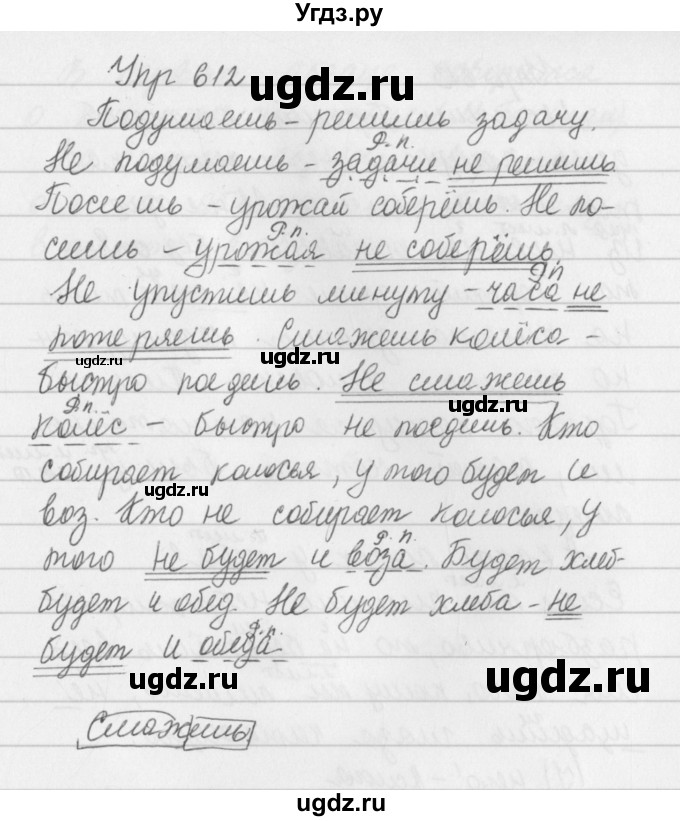 Угдз.ру
Упр 612
ugdz.ru
Подумаешь – решишь задачу.
Р.п.
Не подумаешь – задачи не решишь.
Посеешь – урожай соберёшь. Не по-
Р.п.
сеешь – урожая не соберёшь.
Р.п.
Не упустишь минуту – часа не
потеряешь. Смажешь колёса –
ugdz.ru
ugdz.ru
быстро поедешь. Не смажешь
Р.п.
ugdz.ru
колёс – быстро не поедешь. Кто
собирает колосья, у того будет и
ugdz.ru
воз. Кто не собирает колосья, у
Р.п.
того не будет и воза. Будет хлеб-
будет и обед. Не будет хлеба – не
Р.п.
будет и обеда
ugdz.ru
ugdz.ru
Смажешь
ugdz.ru